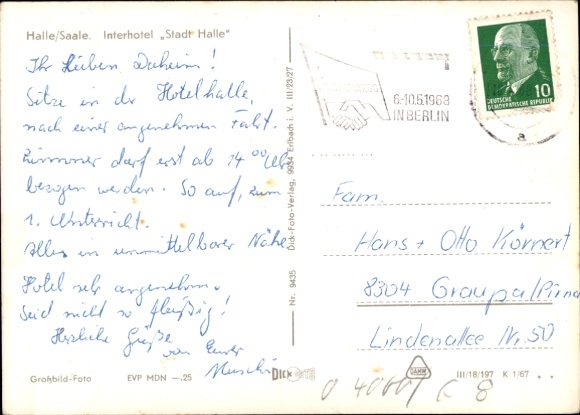 Halle/Saale. Interhotel „Stadt Halle"
Ihr Lieben Daheim!
Sitze in der Hotelhalle,
nach einer angenehmen Fahrt.
Zimmer darf erst ab 14⁰⁰ Uhr
bezogen werden. So auf, zum
1. Unterricht.
Alles in unmittelbarer Nähe
Hotel sehr angenehm.
Seid nicht so fleißig!
Herzliche Grüße
von Eurer
Großbild-Foto EVP MDN —.25
Nr. 9435 Dick-Foto-Verlag, 9934 Erlbach i. V. III/23/27
DICK FOTO
6.-10.5.1968
IN BERLIN
10
DEUTSCHE
DEMOKRATISCHE REPUBLIK
a
Fam.
Hans + Otto Körnert
8304 Graupa/Pirna
Lindenallee Nr. 50
III/18/197 K 1/67
K 8